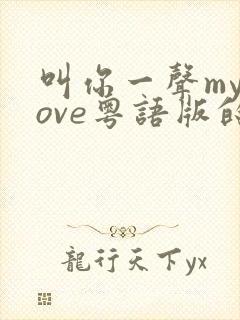 叫你一聲my
ove粵語版的
龍行天下yx